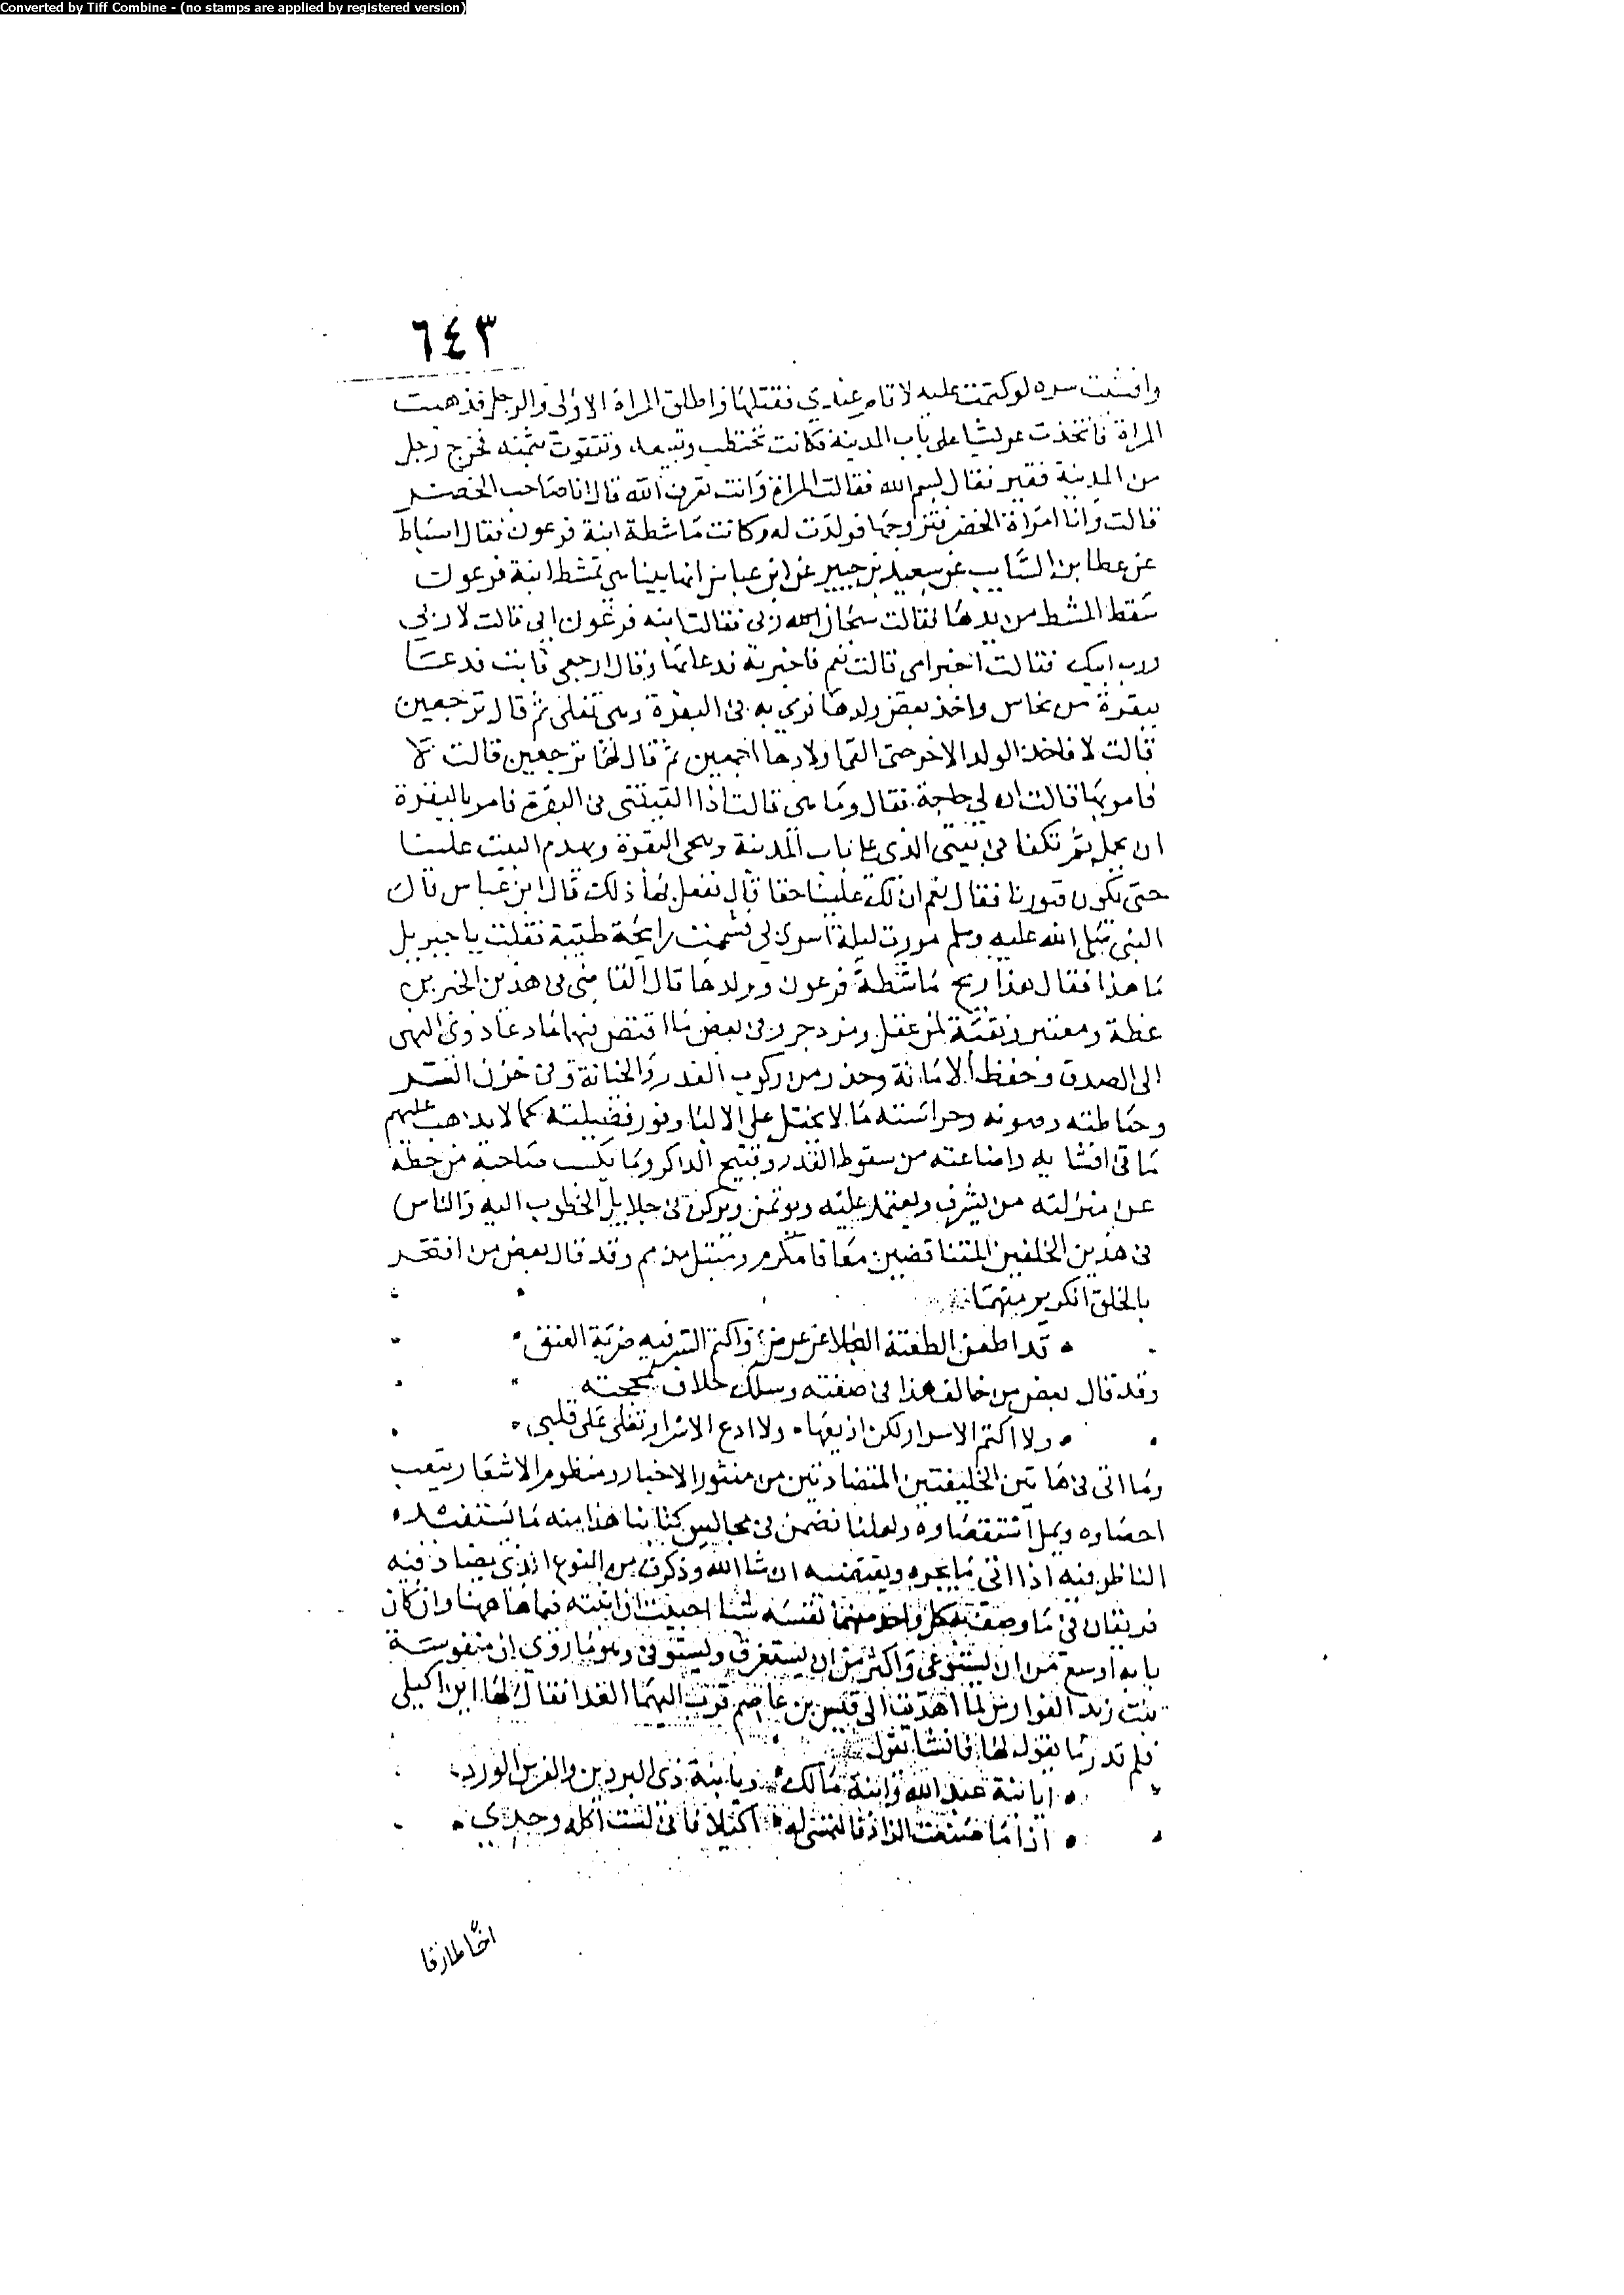 Converted by Tiff Combine - (no stamps are applied by registered version)
٦٤٣
وافشت سره لو كتمت عليه لاقام عندي فقتلها واطلق المراة الاولى والرجل فذهبت
المراة فاتخذت عريشا على باب المدينة فكانت تحتطب وتبيعه وتتقوت بثمنه فخرج رجل
من المدينة فقير فقال بسم الله فقالت المراة وانت تعرف الله قال انا صاحب الخضر
قالت وانا امراة الخضر فتزوجها فولدت له وكانت ماشطة ابنة فرعون فقال اسباط
عن عطا بن السايب عن سعيد بن جبير عن ابن عباس انها بينا هي تمشط ابنة فرعون
سقط المشط من يدها فقالت سبحان الله ربي فقالت ابنه فرعون ابي قالت لا ربي
ورب ابيك فقالت اخبر ابي قالت نعم فاخبرته فدعا بها وقال ارجعي فابت فدعا
ببقرة من نحاس واخذ بعض ولدها فرمي به في البقرة وهي تغلي ثم قال ترجعين
قالت لا فاخذ الولد الاخر حتى القى اولادها اجمعين ثم قال لها ترجعين قالت لا
فامر بها قالت ان لي حاجة فقال وما هي قالت اذا القيتني في البقرة فامر بالبقرة
ان تحمل ثم تكفا في بيتي الذي على باب المدينة وتنحى البقرة ويهدم البيت علينا
حتى تكون قبورنا فقال نعم ان لك علينا حقا قال ففعل بها ذلك قال ابن عباس قال
النبي صلى الله عليه وسلم مررت ليلة اسري بي فشممت رايحة طيبة فقلت يا جبريل
ما هذا فقال هذا ريح ماشطة فرعون وولدها قال القاضي في هذين الخبرين
عظة ومعتبر وتقية لمن عقل ومزدجر وفي بعض ما اقتص فيهما ما دعا ذوي النهى
الى الصدق وحفظ الامانة وحذر من ركوب الغدر والخيانة وفي خزن السر
وحياطته وصونه وحراسته ما لا يختل على الالبا وفور فضيلته كما لا يذهب عليهم
ما في افشايه واضاعته من سقوط القدر وقبيح الذكر وما يكسب صاحبه من حطه
عن منزلته من يشرف ويعتمد عليه ويوتمن ويركن في جلايل الخطوب اليه والناس
في هذين الخلقين المتناقضين معافا مكرم ومبتلى مذمم وقد قال بعض من افتخر
بالخلق الكريم منهما
قد اطعن الطعنة النجلا عن عرض واكتم السر فيه ضربة العنق
وقد قال بعض من خالف هذا في صفته وسلك خلاف محجته
ولا اكتم الاسرار لكن اذيعها ولا ادع الاسرار تغلي على قلبي
وما اتى في هاتين الخليقتين المتضادتين من منثور الاخبار ومنظوم الاشعار يتعب
احصاوه ويمل استقصاوه ولعلنا نضمن في مجالس كتابنا هذا منه ما يستفيده
الناظر فيه اذا اتى ما يجره ويقتضيه ان شا الله وذكرت من النوع الذي يضاد فيه
فريقان في ما وصف به كل واحد منهما نفسه شيا احببت ان اثبته فيما هاهنا وان كان
بابه اوسع من ان يستوعى واكثر من ان يستغرق ويستوفى وهو ما روي ان منفوسة
بنت زيد الفوارس لما اهديت الى قيس بن عاصم قرب اليها الغدا فقال لها اين اكيلي
فلم تدر ما يقول لها فانشا يقول
ايا ابنة عبد الله وابنة مالك ويا ابنة ذي البردين والفرس الورد
اذا ما صنعت الزاد فالتمسي له اكيلا فاني لست اكله وحدي
اخا طارقا